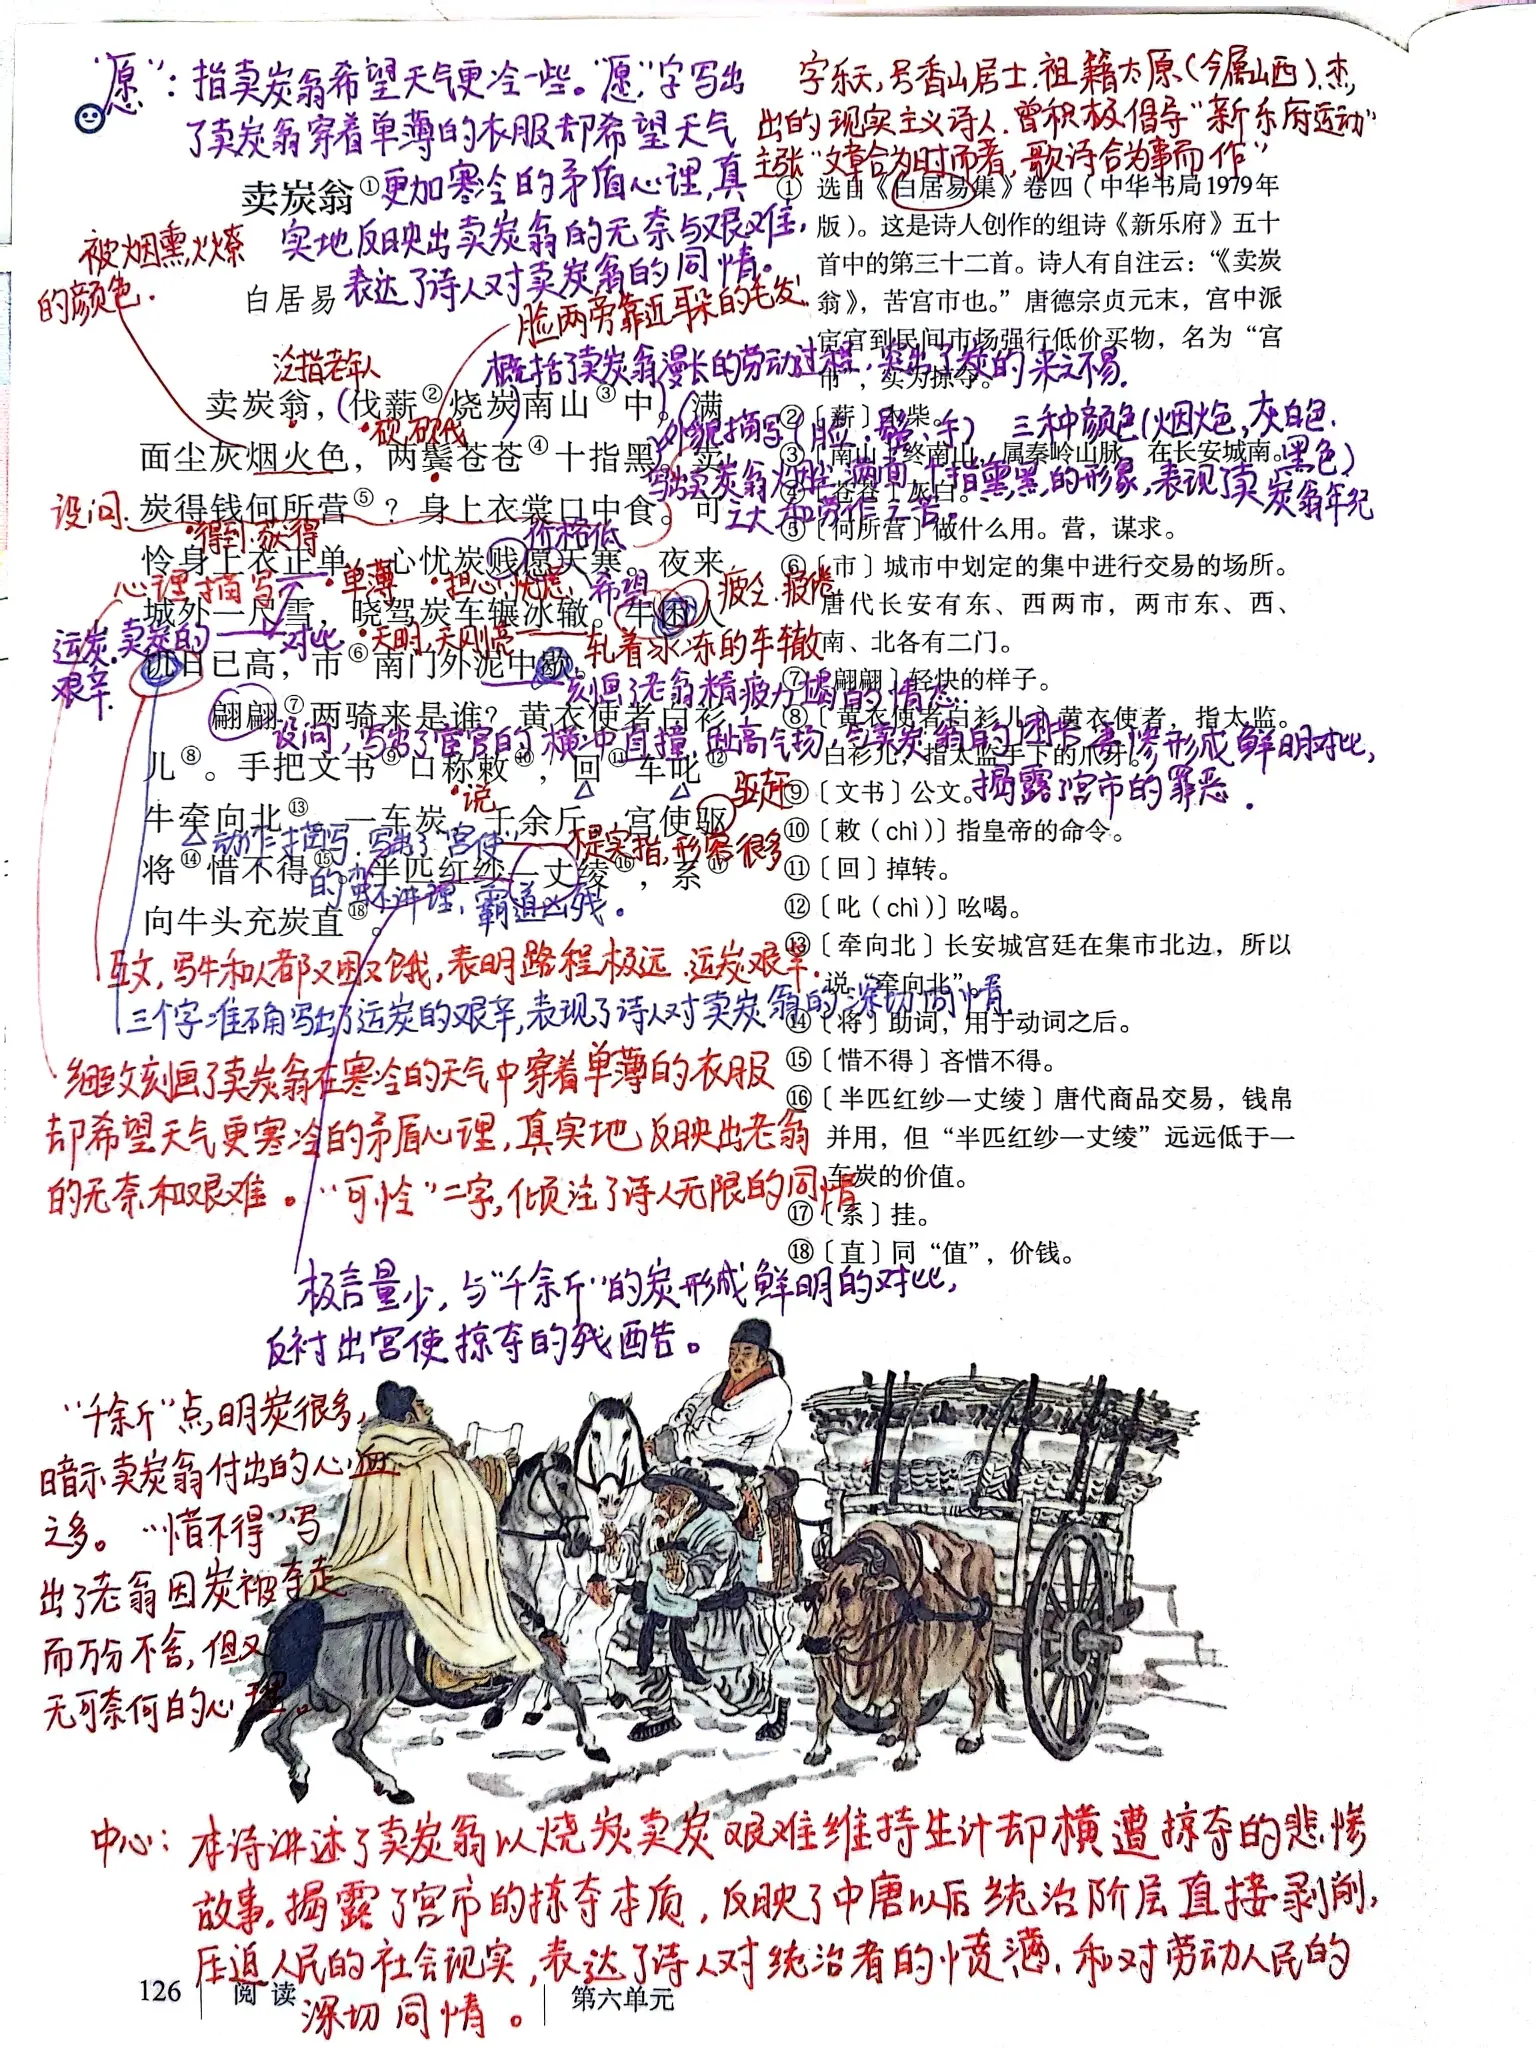 “愿”：指卖炭翁希望天气更冷一些。“愿”字写出
了卖炭翁穿着单薄的衣服却希望天气
更加寒冷的矛盾心理,真
实地反映出卖炭翁的无奈与艰难,
表达了诗人对卖炭翁的同情。
字乐天,号香山居士.祖籍太原(今属山西).杰
出的现实主义诗人.曾积极倡导“新乐府运动”
主张“文章合为时而著,歌诗合为事而作”
卖炭翁①
白居易
被烟熏火燎
的颜色.
脸两旁靠近耳朵的毛发.
泛指老年人
概括了卖炭翁漫长的劳动过程,突出了炭的来之不易.
卖炭翁，(伐薪②烧炭)南山③中。(满
砍,砍伐
外貌描写(脸、鬓、手) 三种颜色(烟火色,灰白色.
黑色)
面尘灰烟火色，两鬓苍苍④十指黑。卖
写出卖炭翁烟尘满面,十指黑黑的形象,表现了卖炭翁年纪
之大和劳作之苦。
设问.
炭得钱何所营⑤？身上衣裳口中食。可
得到.获得
价格低
怜身上衣正单，心忧炭贱愿天寒。夜来
心理描写
单薄
担心,忧虑,
希望
疲乏.疲倦
城外一尺雪，晓驾炭车辗冰辙。牛困人
运炭.卖炭的
艰辛.
对比
天明,天刚亮
轧着冰冻的车辙
饥日已高，市⑥南门外泥中歇。
刻画了老翁精疲力竭的情态.
翩翩⑦两骑来是谁？黄衣使者白衫
设问,写出了宦官的横冲直撞,趾高气扬,与卖炭翁的困苦、悲惨形成鲜明对比,
揭露了宫市的罪恶.
儿⑧。手把文书⑨口称敕⑩，回⑪车叱⑫
说
驱赶
牛牵向北⑬。一车炭，千余斤，宫使驱
动作描写.写出了宫使
的蛮不讲理、霸道凶残。
不是实指,形容很多
将⑭惜不得⑮。半匹红纱一丈绫⑯，系⑰
向牛头充炭直⑱。
互文,写牛和人都又困又饿,表明路程极远.运炭艰辛.
三个字准确写出了运炭的艰辛,表现了诗人对卖炭翁的深切同情.
细致刻画了卖炭翁在寒冷的天气中穿着单薄的衣服
却希望天气更寒冷的矛盾心理,真实地反映出老翁
的无奈和艰难。“可怜”二字,倾注了诗人无限的同情
极言量少,与“千余斤”的炭形成鲜明的对比,
反衬出宫使掠夺的残酷。
① 选自《白居易集》卷四（中华书局1979年
版）。这是诗人创作的组诗《新乐府》五十
首中的第三十二首。诗人有自注云：“《卖炭
翁》，苦宫市也。”唐德宗贞元末，宫中派
宦官到民间市场强行低价买物，名为“宫
市”，实为掠夺。
②〔薪〕木柴。
③〔南山〕终南山，属秦岭山脉，在长安城南。
④〔苍苍〕灰白。
⑤〔何所营〕做什么用。营，谋求。
⑥〔市〕城市中划定的集中进行交易的场所。
唐代长安有东、西两市，两市东、西、
南、北各有二门。
⑦〔翩翩〕轻快的样子。
⑧〔黄衣使者白衫儿〕黄衣使者，指太监。
白衫儿，指太监手下的爪牙。
⑨〔文书〕公文。
⑩〔敕（chì）〕指皇帝的命令。
⑪〔回〕掉转。
⑫〔叱（chì）〕吆喝。
⑬〔牵向北〕长安城宫廷在集市北边，所以
说“牵向北”。
⑭〔将〕助词，用于动词之后。
⑮〔惜不得〕吝惜不得。
⑯〔半匹红纱一丈绫〕唐代商品交易，钱帛
并用，但“半匹红纱一丈绫”远远低于一
车炭的价值。
⑰〔系〕挂。
⑱〔直〕同“值”，价钱。
“千余斤”点明炭很多,
暗示卖炭翁付出的心血
之多。“惜不得”写
出了老翁因炭被夺走
而万分不舍,但又
无可奈何的心理。
中心：本诗讲述了卖炭翁以烧炭卖炭艰难维持生计却横遭掠夺的悲惨
故事.揭露了宫市的掠夺本质,反映了中唐以后统治阶层直接剥削,
压迫人民的社会现实,表达了诗人对统治者的愤懑.和对劳动人民的
深切同情。
126 阅读 第六单元